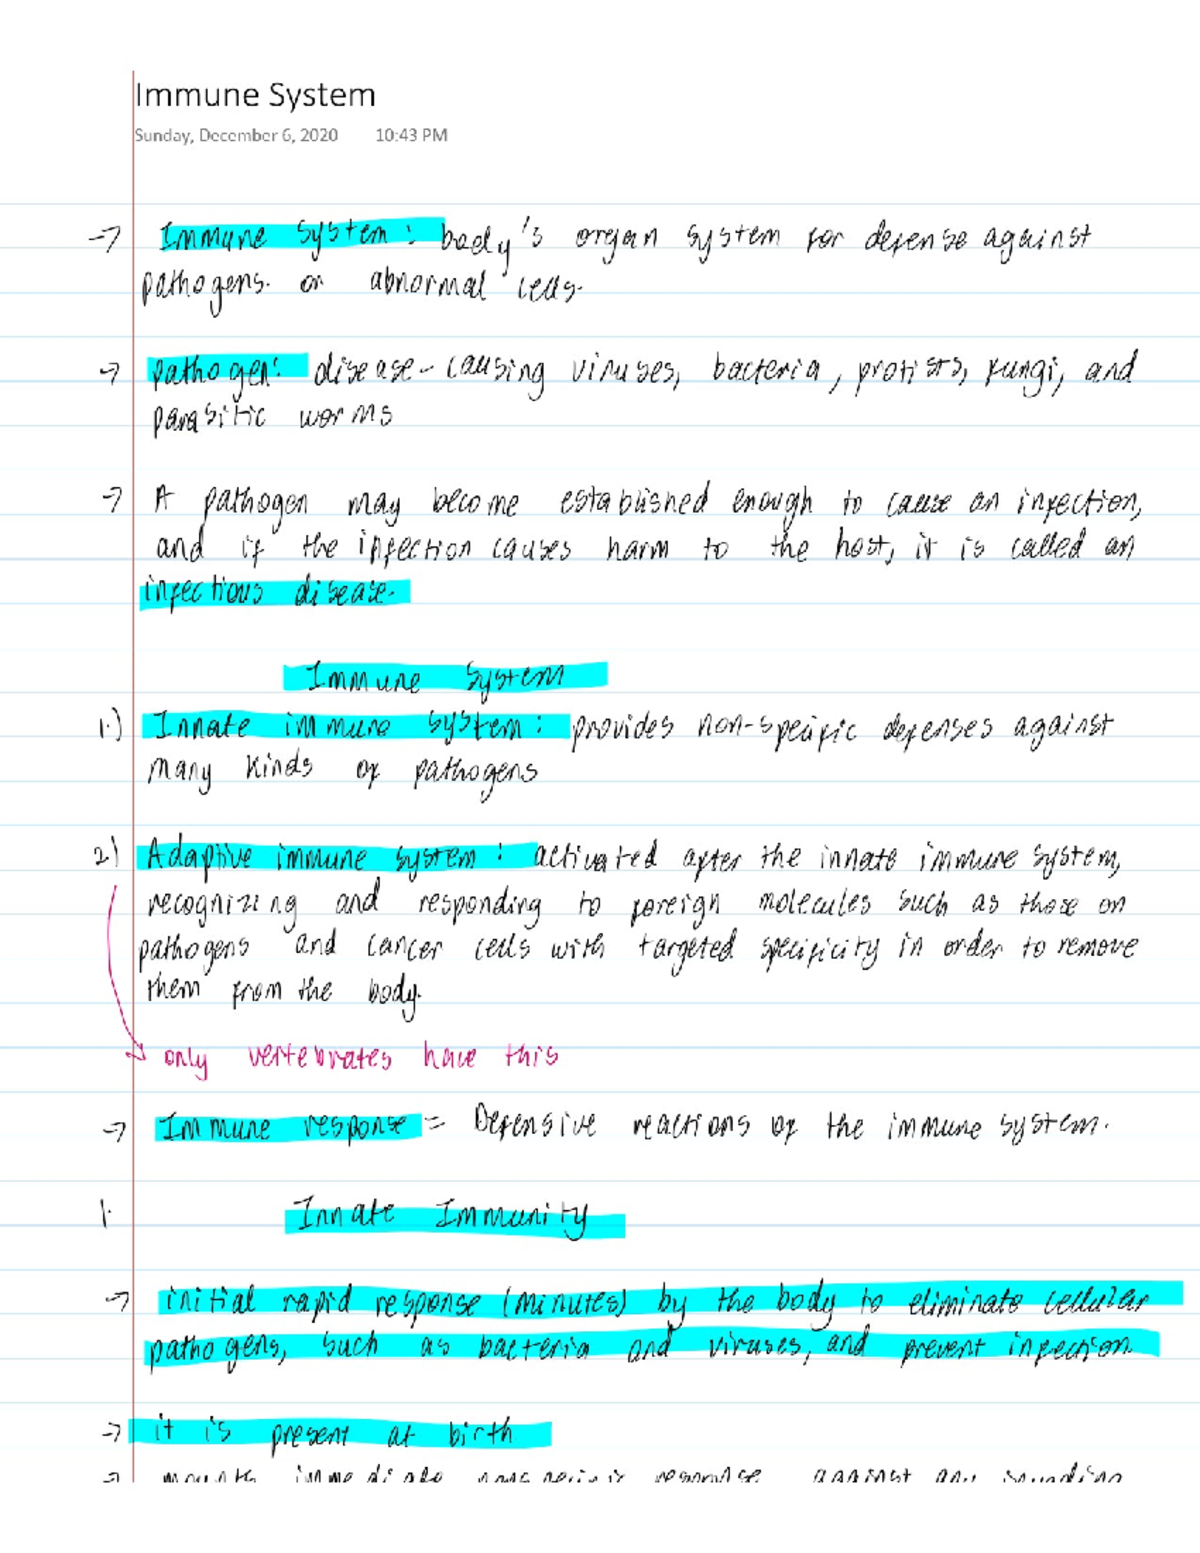 Immune System
Sunday, December 6, 2020 10:43 PM
→ Immune System: body's organ system for defense against
pathogens. or abnormal cells.
→ pathogen: disease-causing viruses, bacteria, protists, fungi, and
parasitic worms
→ A pathogen may become established enough to cause an infection,
and if the infection causes harm to the host, it is called an
infectious disease.
Immune System
1.) Innate immune system: provides non-specific defenses against
many kinds of pathogens
2) Adaptive immune system: activated after the innate immune system,
recognizing and responding to foreign molecules such as those on
pathogens and cancer cells with targeted specificity in order to remove
them from the body.
only vertebrates have this
→ Immune response = Defensive reactions of the immune system.
1. Innate Immunity
→ initial rapid response (minutes) by the body to eliminate cellular
pathogens, such as bacteria and viruses, and prevent infection.
→ it is present at birth
→ mounts immediate nonspecific response against any invading